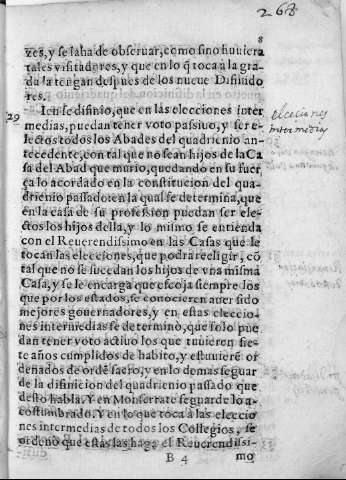 268
8
zes, y se ha de obseruar, como si no huuiera
tales visitadores, y que en lo q̃ toca à la gra-
da la tengan despues de los nueue Difinido
res.
29 Iten se difinio, que en las elecciones inter
medias, puedan tener voto passiuo, y ser e-
lectos todos los Abades del quadrienio an-
tecedente, con tal que no sean hijos de la Ca
sa del Abad que murio, quedando en su fuer
ça lo acordado en la constitucion del qua-
drienio passado: en la qual se determina, que
en la casa de su profession puedan ser ele-
ctos los hijos della, y lo mismo se entienda
con el Reuerendissimo en las Casas que le
tocan las elecciones, que podra reeligir, cõ
tal que no se sucedan los hijos de vna misma
Casa, y se le encarga que escoja siempre los
que por los estados, se conocieren auer sido
mejores gouernadores, y en estas eleccio-
nes intermedias se determinò, que solo pue
dan tener voto actiuo los que tuuieren sie-
te años cumplidos de habito, y estuuierẽ or
denados de ordẽ sacro, y en lo demas se guar
de la difinicion del quadrienio passado que
desto habla. Y en Monserrate se guarde lo a-
costumbrado. Y en lo que toca a las eleccio
nes intermedias de todos los Collegios, se
ordenò que estas las haga el Reuerendissi-
B 4 mo
elecciones
intermedias